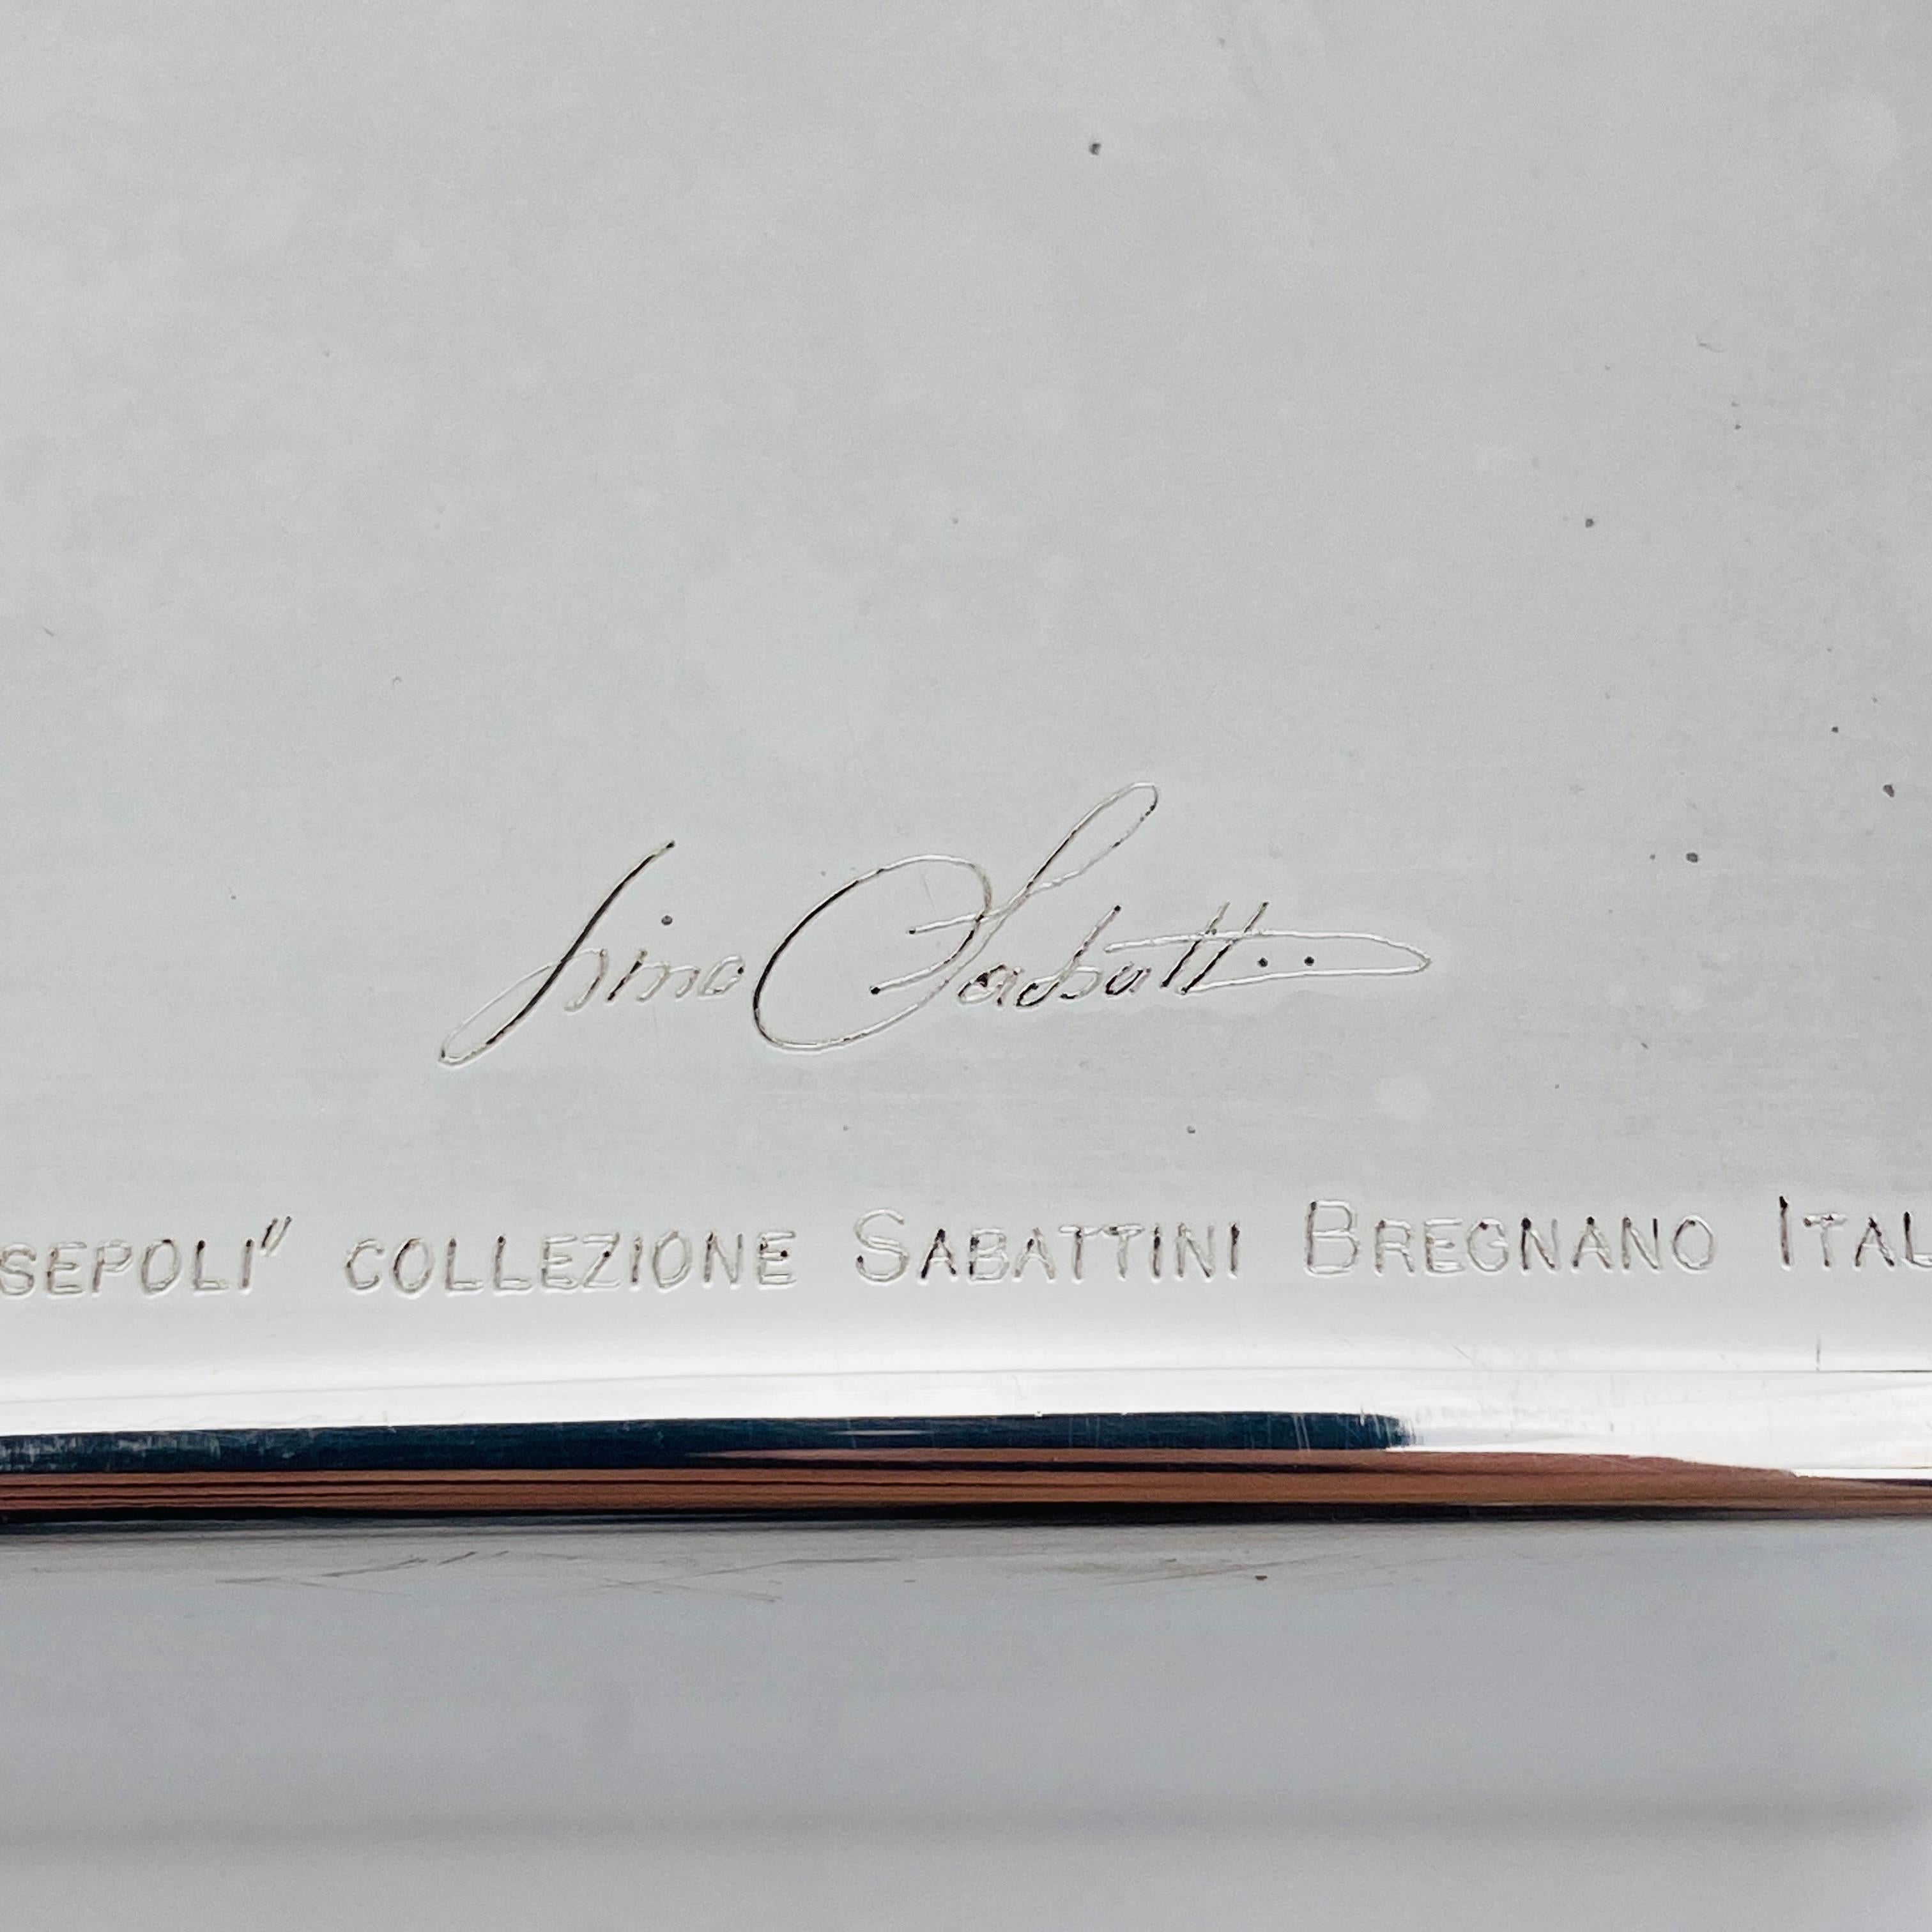 Lino Sabattini
SEPOLI" COLLEZIONE SABATTINI BREGNANO ITAL